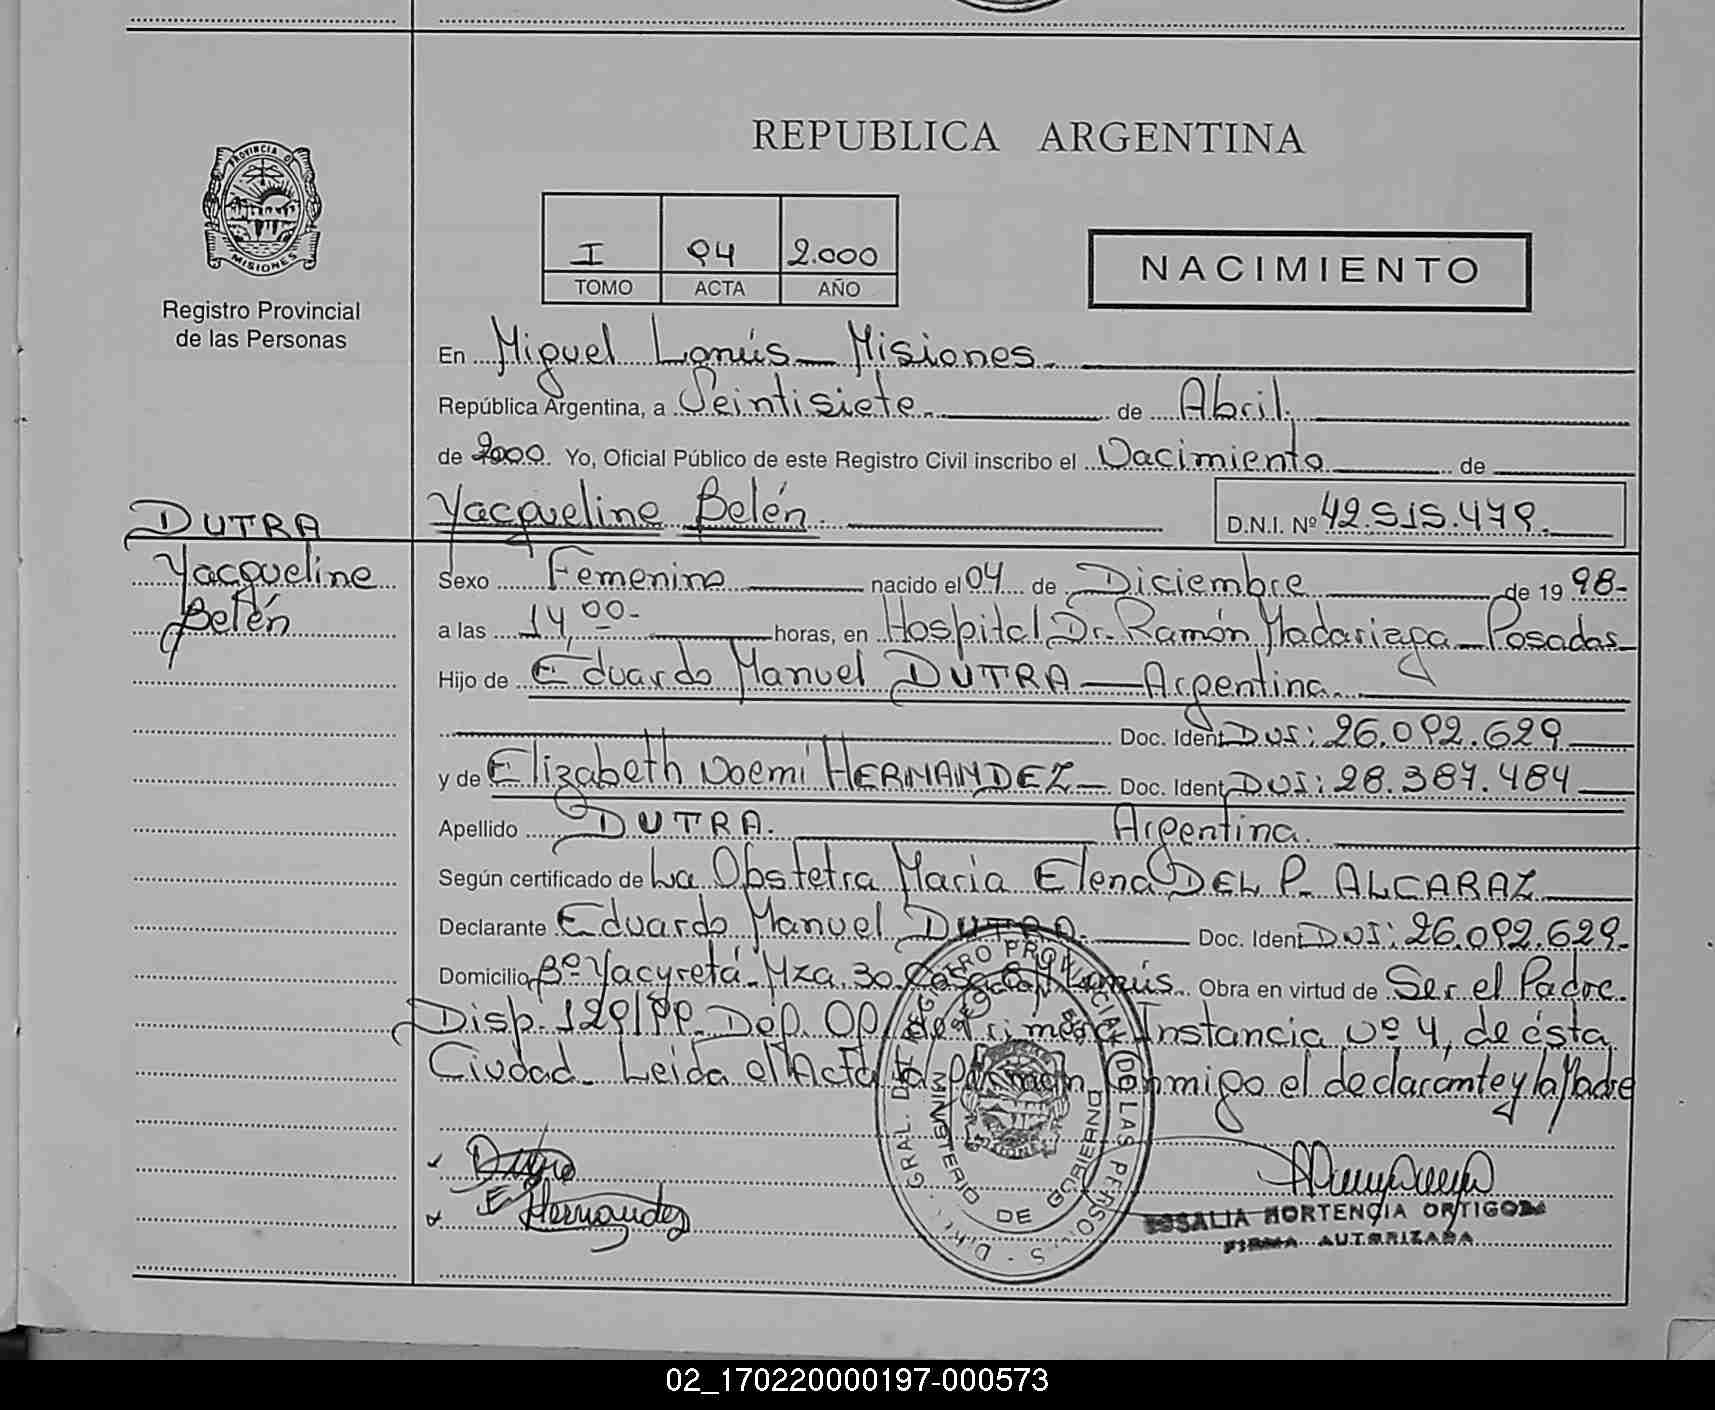 REPUBLICA ARGENTINA
PROVINCIA DE
MISIONES
Registro Provincial
de las Personas
I 94 2.000
TOMO ACTA AÑO
NACIMIENTO
En Miguel Lanús_ Misiones.
República Argentina, a Veintisiete. de Abril.
de 2000. Yo, Oficial Público de este Registro Civil inscribo el Nacimiento de
Yacqueline Belén. D.N.I. Nº 42.515.479.
DUTRA
Yacqueline
Belén
Sexo Femenino nacido el 04 de Diciembre de 19 98-
a las 14,00- horas, en Hospital Dr. Ramón Madariaga_ Posadas_
Hijo de Eduardo Manuel DUTRA_ Argentina.
Doc. Ident. DNI: 26.092.629
y de Elizabeth Noemi HERNANDEZ_ Doc. Ident. DNI: 28.387.484
Apellido DUTRA. Argentina.
Según certificado de La Obstetra Maria Elena DEL P. ALCARAZ
Declarante Eduardo Manuel DUTRA. Doc. Ident. DNI: 26.092.629.
Domicilio Bº Yacyretá. Mza. 30. Casa Lanús. Obra en virtud de Ser el Padre.
Disp. 129/99. Def. Of. de Primera Instancia Nº 4, de ésta
Ciudad_ Leida el Acta la firman conmigo el declarante y la Madre
Dutra
E Hernandez
GRAL. DEL REGISTRO PROVINCIAL DE LAS PERSONAS
MINISTERIO DE GOBIERNO
ROSALIA HORTENCIA ORTIGOZA
FIRMA AUTORIZADA
02_170220000197-000573